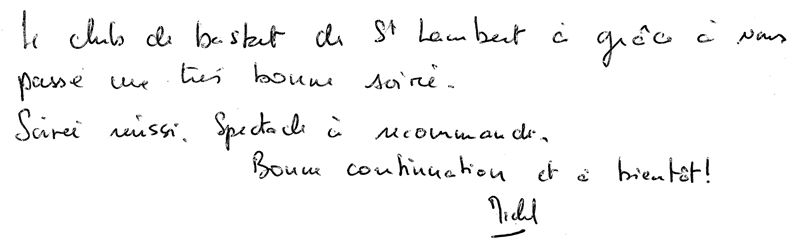 Le club de basket de St Lambert à grâce à vous
passé une très bonne soirée.
Soirée réussi. Spectacle à recommandé.
Bonne continuation et à bientôt!
Michel